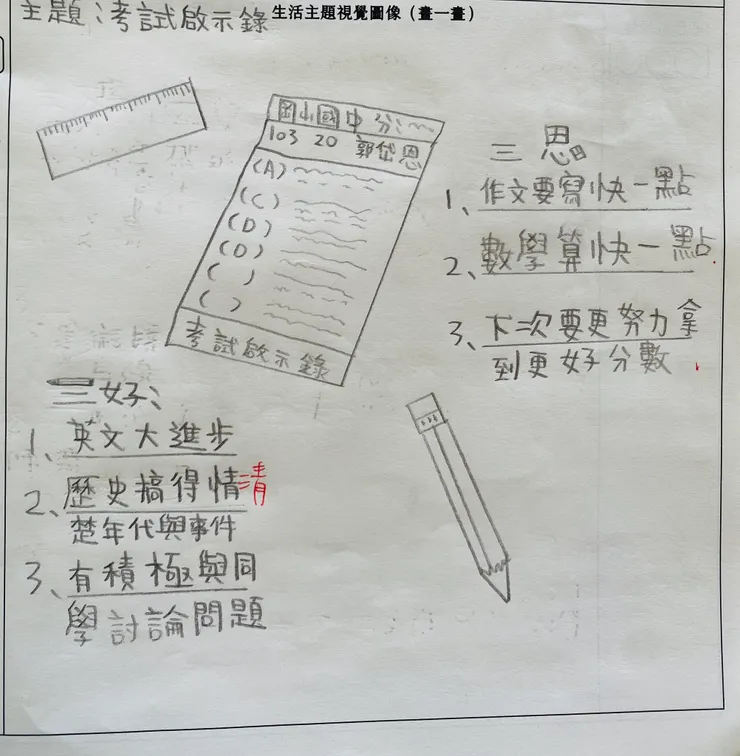 主題:考試啟示錄
生活主題視覺圖像(畫一畫)
岡山國中 分:
103 20 郭岱恩
(A)
(C)
(D)
(D)
( )
( )
考試啟示錄
三思
1、作文要寫快一點
2、數學算快一點
3、下次要更努力拿
到更好分數
三好:
1、英文大進步
2、歷史搞得情清
楚年代與事件
3、有積極與同
學討論問題